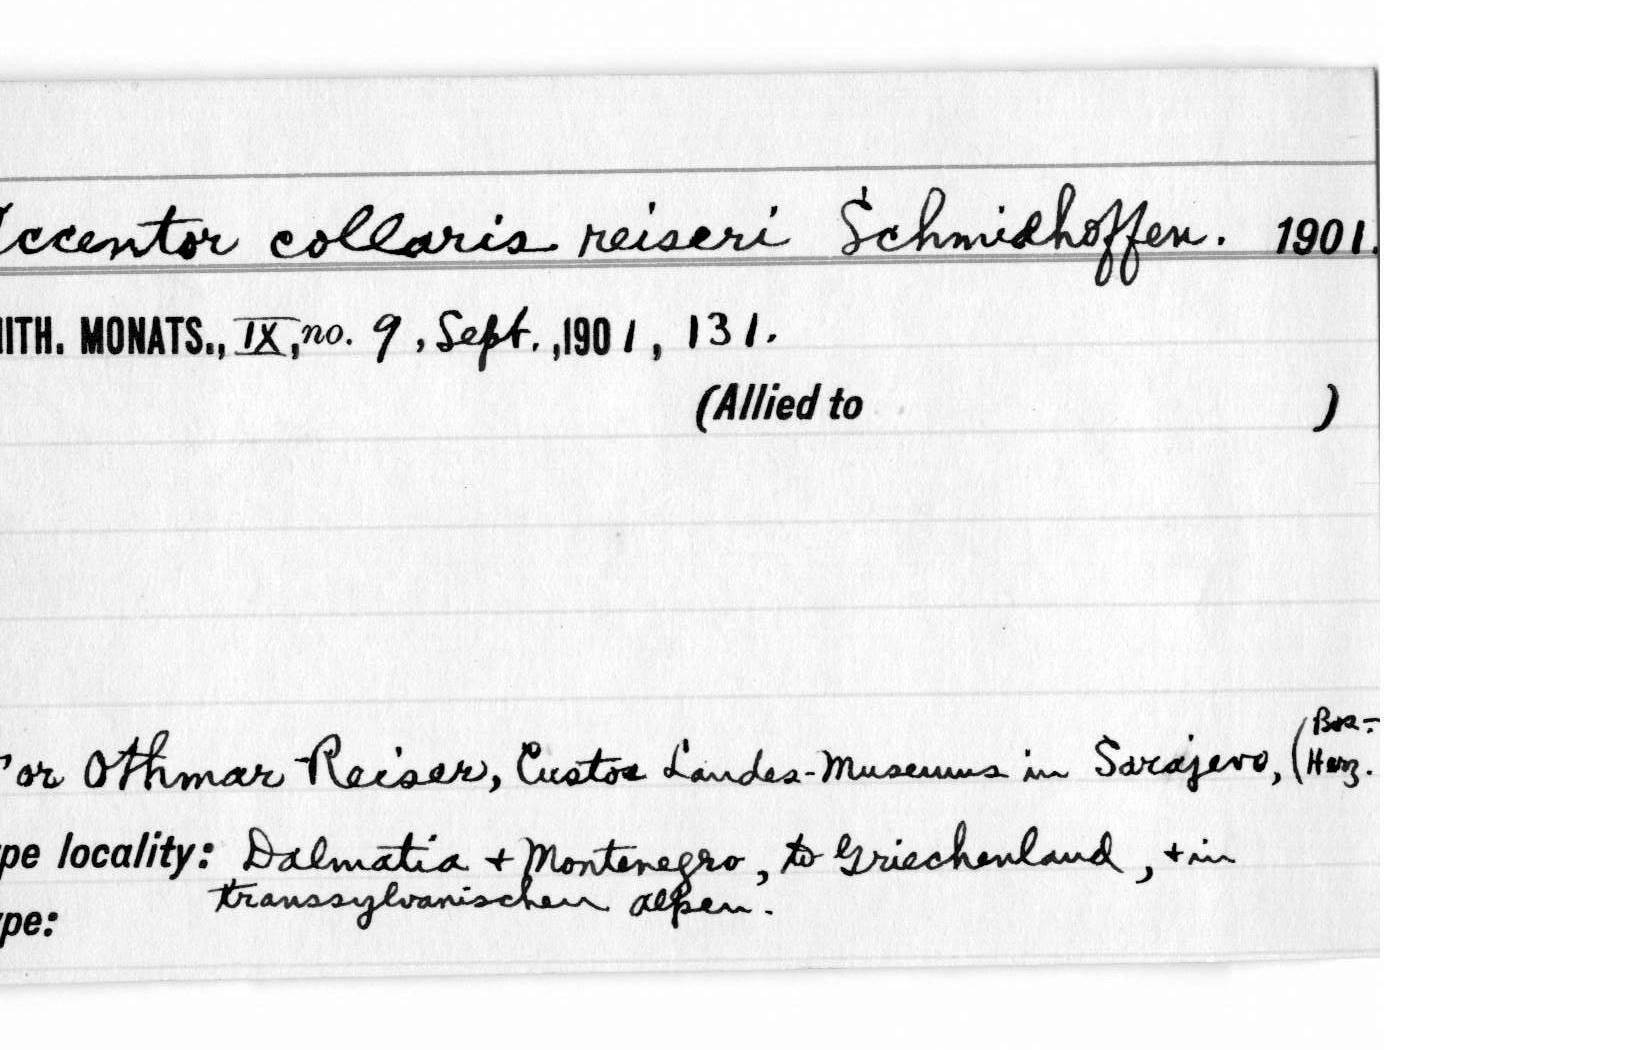 Accentor collaris reiseri Schmidhoffen. 1901.
NITH. MONATS., IX, no. 9, Sept., 1901, 131.
(Allied to )
For Othmar Reiser, Custos Landes-Museums in Sarajevo, (Bos.- Herz.
ype locality: Dalmatia + Montenegro, to Griechenland, + in
transsylvanischen alpen.
ype: